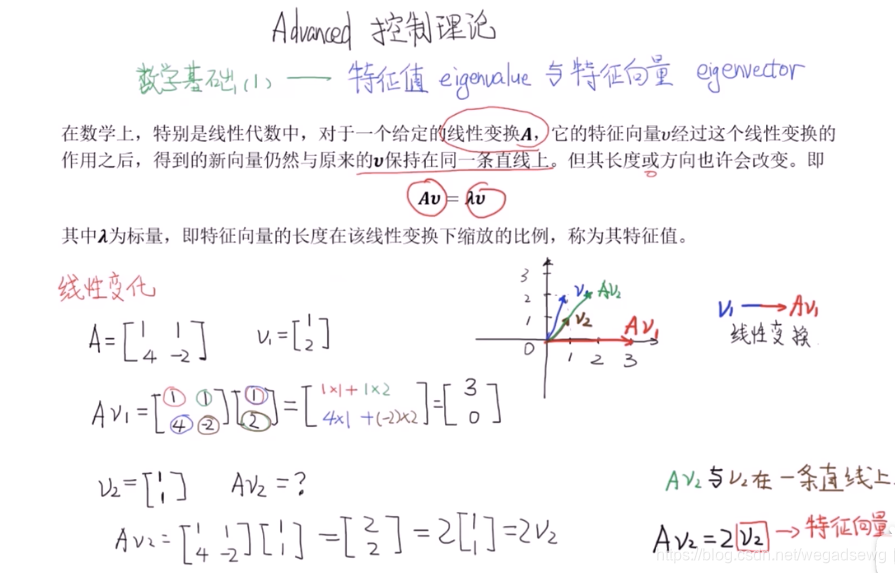 Advanced 控制理论
数学基础(1) —— 特征值 eigenvalue 与特征向量 eigenvector
在数学上，特别是线性代数中，对于一个给定的线性变换A，它的特征向量υ经过这个线性变换的
作用之后，得到的新向量仍然与原来的υ保持在同一条直线上。但其长度或方向也许会改变。即
Aυ = λυ
其中λ为标量，即特征向量的长度在该线性变换下缩放的比例，称为其特征值。
线性变化
A = [1 1; 4 -2] v₁ = [1; 2]
Av₁ = [1 1; 4 -2][1; 2] = [1×1+1×2; 4×1+(-2)×2] = [3; 0]
v₂ = [1; 1] Av₂ = ?
Av₂ = [1 1; 4 -2][1; 1] = [2; 2] = 2[1; 1] = 2v₂
3
2
1
0 1 2 3
v₁
Av₂
v₂
Av₁
v₁ → Av₁
线性变换
Av₂与v₂在一条直线上
Av₂ = 2v₂ → 特征向量
https://blog.csdn.net/wegadsewg